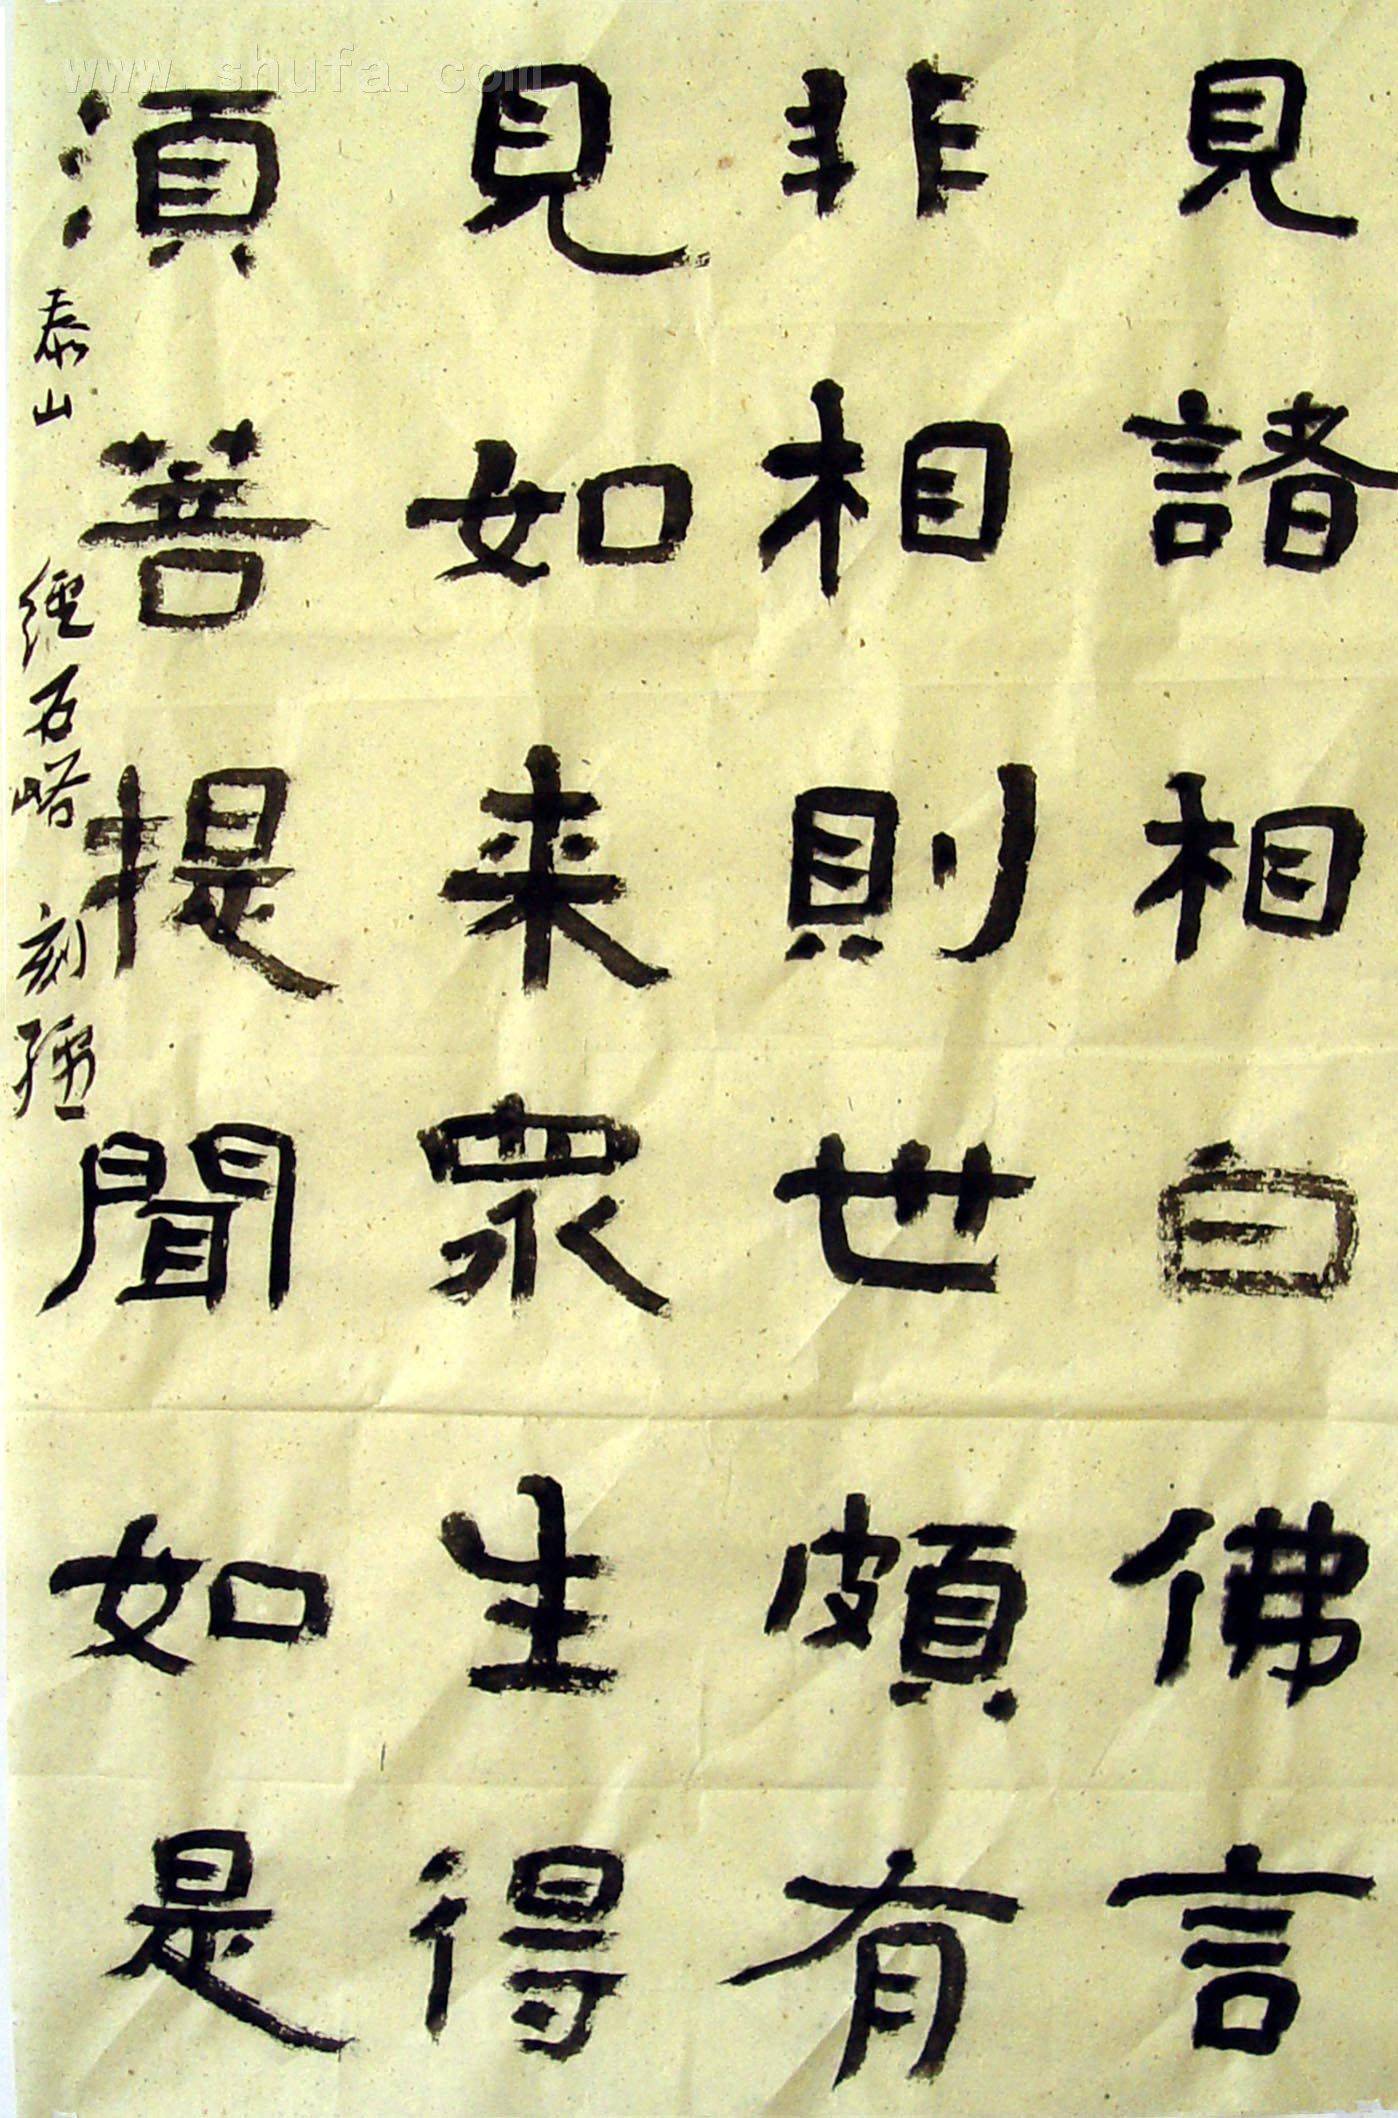 見諸相白佛言
非相則世頗有
見如来眾生得
湏菩提聞如是
泰山經石峪刻經
www.shufa.com